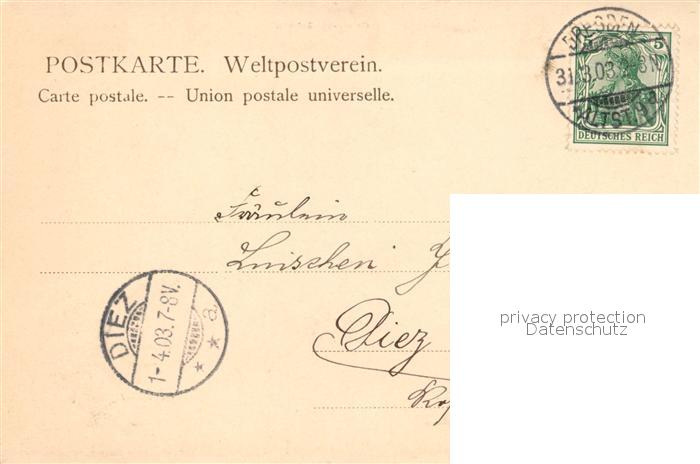 POSTKARTE. Weltpostverein.
Carte postale. -- Union postale universelle.
DRESDEN
31.3.03. 8N
ALTST. 1 a.
5 5
DEUTSCHES REICH
Fräulein
Luischen
Diez
DIEZ
1-4.03.7-8V.
* * a.
privacy protection
Datenschutz